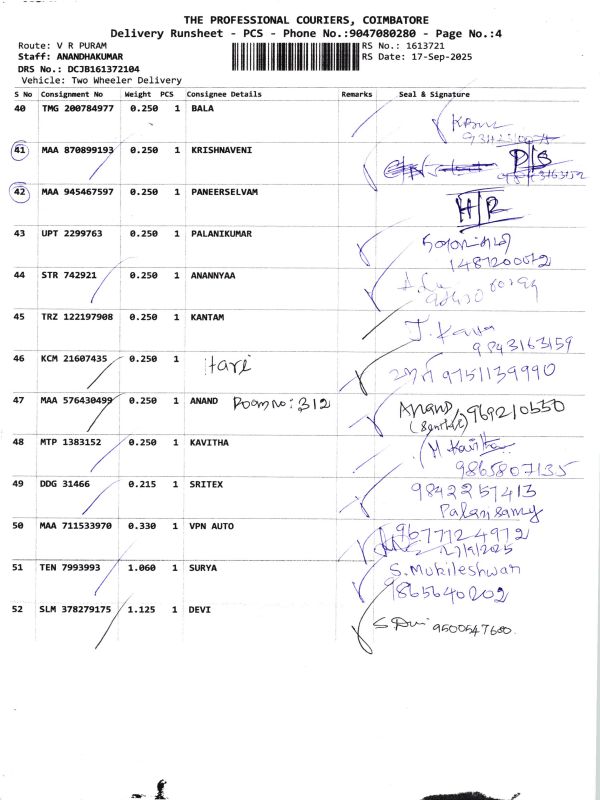 THE PROFESSIONAL COURIERS, COIMBATORE
Delivery Runsheet - PCS - Phone No.:9047080280 - Page No.:4
Route: V R PURAM
RS No.: 1613721
Staff: ANANDHAKUMAR
RS Date: 17-Sep-2025
DRS No.: DCJB161372104
Vehicle: Two Wheeler Delivery
S No Consignment No Weight PCS Consignee Details Remarks Seal & Signature
40 TMG 200784977 0.250 1 BALA
41 MAA 870899193 0.250 1 KRISHNAVENI D/S
42 MAA 945467597 0.250 1 PANEERSELVAM H/R
43 UPT 2299763 0.250 1 PALANIKUMAR
44 STR 742921 0.250 1 ANANNYAA
45 TRZ 122197908 0.250 1 KANTAM J. Kava
9843163159
46 KCM 21607435 0.250 1 Hari 9751139990
47 MAA 576430499 0.250 1 ANAND Room no: 312 Anand
48 MTP 1383152 0.250 1 KAVITHA M Kavitha
9865807135
49 DDG 31466 0.215 1 SRITEX 9842257413
Palanisamy
50 MAA 711533970 0.330 1 VPN AUTO 9677124972
17/9/2025
51 TEN 7993993 1.060 1 SURYA S. Mukileshwan
9865640202
52 SLM 378279175 1.125 1 DEVI S Devi 9500547600